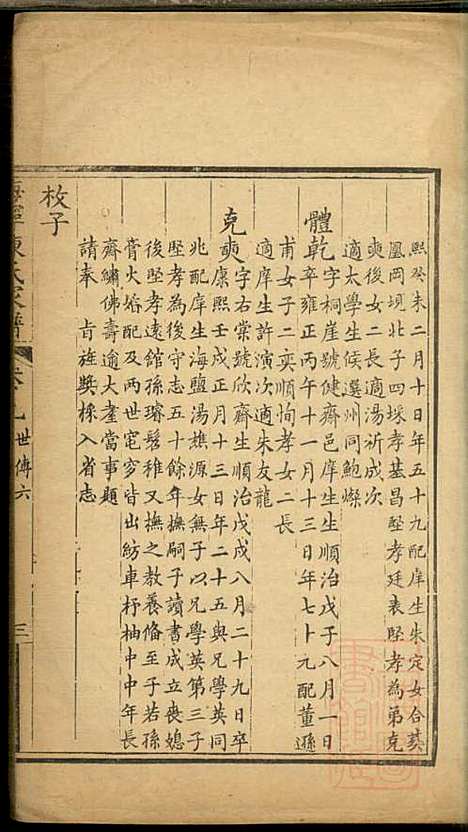 熙癸未二月十日年五十九配庠生朱定女合葬
鳳岡垻北子四埰孝基昌堅孝廷表堅孝為第克
奭後女二長適湯祈成次
適太學生候選州同鮑燦
體乾字桐崖號健齋邑庠生生順治戊子八月一日
卒雍正丙午十一月十三日年七十九配董遜
甫女子二奕順恂孝女二長
適庠生許演次適朱友龍
克奭字右棠號欣齋生順治戊戌八月二十九日卒
康熙壬戌正月十三日年二十五與兄學英同
兆配庠生海鹽湯樵源女無子以兄學英第三子
堅孝為後守志五十餘年撫嗣子讀書成立喪媳
後堅孝遠館孫璿髫稚又撫之教養俻至于若孫
膏火婚配及兩世窀穸皆出紡車杼柚中中年長
齋繡佛壽逾大耋當事題
請奉 旨旌奬採入省志
枚子
海寧陳氏家譜 卷九 世傳六
三